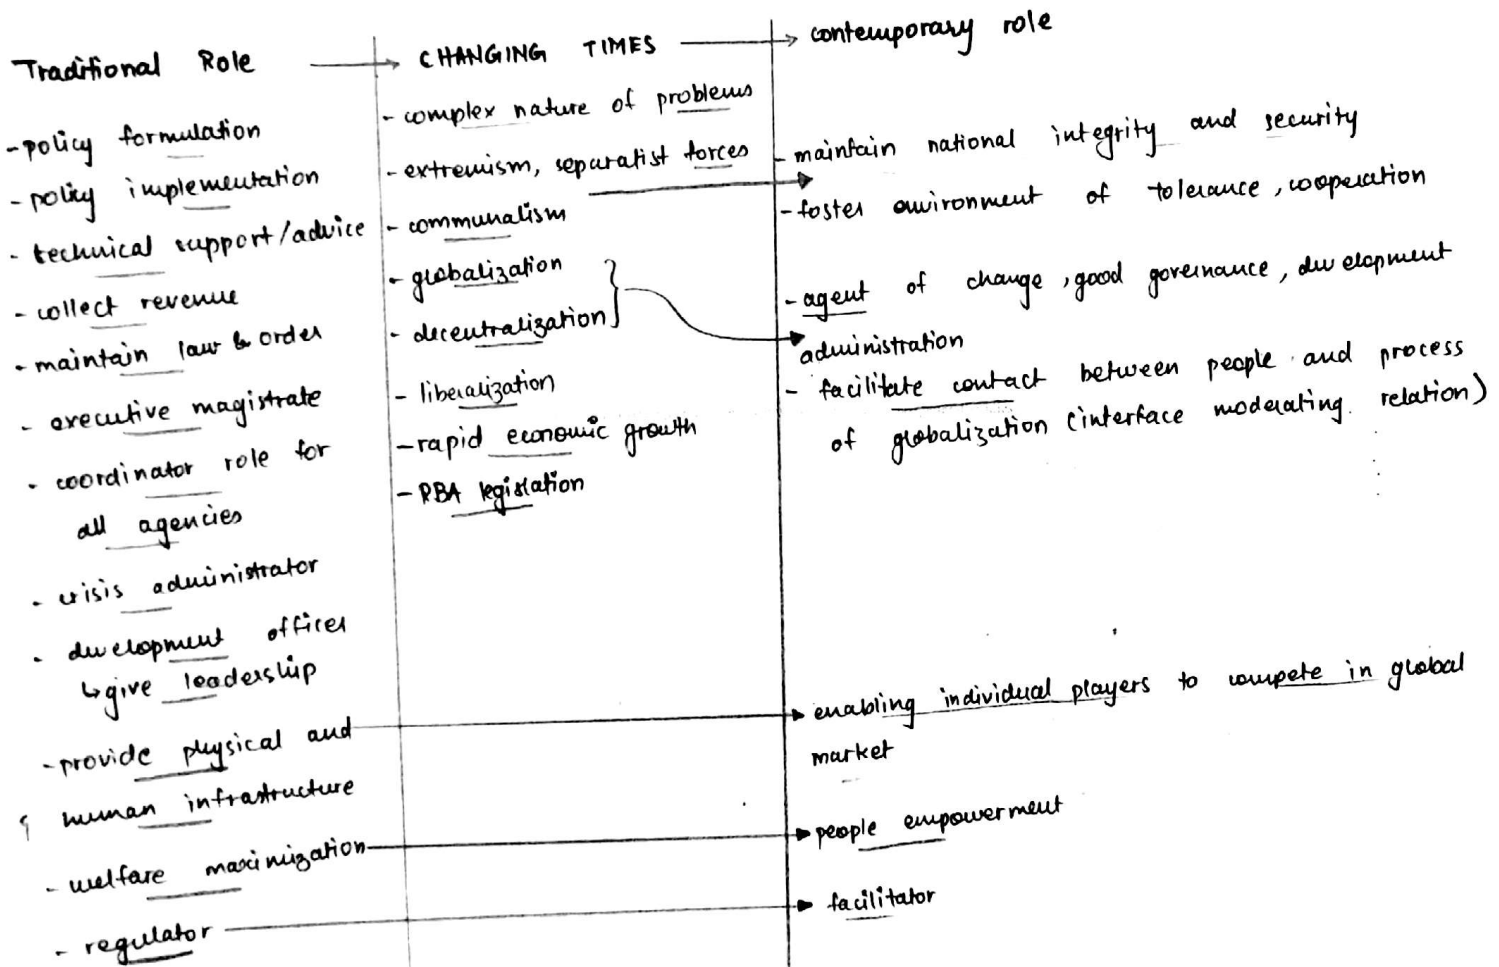 Traditional Role
-policy formulation
- policy implementation
- technical support/advice
- collect revenue
- maintain law & order
- executive magistrate
- coordinator role for
all agencies
- crisis administrator
- development officer
↳ give leadership
- provide physical and
human infrastructure
- welfare maximization
- regulator
CHANGING TIMES
- complex nature of problems
- extremism, separatist forces
- communalism
- globalization
- decentralization
- liberalization
- rapid economic growth
- RBA legislation
contemporary role
- maintain national integrity and security
- foster environment of tolerance, cooperation
- agent of change, good governance, development
administration
- facilitate contact between people and process
of globalization (interface moderating relation)
enabling individual players to compete in global
market
people empowerment
facilitator